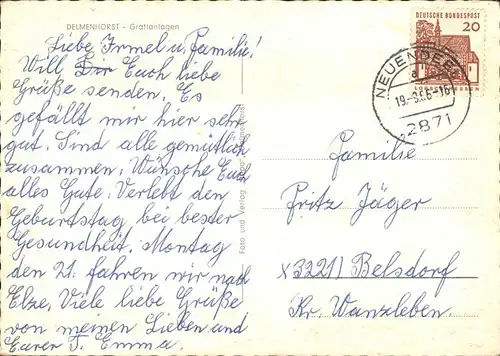 DELMENHORST - Graftanlagen
Liebe Irmel u. Familie!
Will Dir Euch liebe
Grüße senden. Es
gefällt mir hier sehr
gut. Sind alle gemütlich
zusammen. Wünsche Euch
alles Gute. Verlebt den
Geburtstag bei bester
Gesundheit. Montag
den 21. fahren wir nach
Elze. Viele liebe Grüße
von meinen Lieben und
Eurer T. Emma.
Foto und Verlag
DEUTSCHE BUNDESPOST
20
NEUENDEEL
a
19.-3.66-16
2871
Familie
Fritz Jäger
X3221) Belsdorf
Kr. Wanzleben.